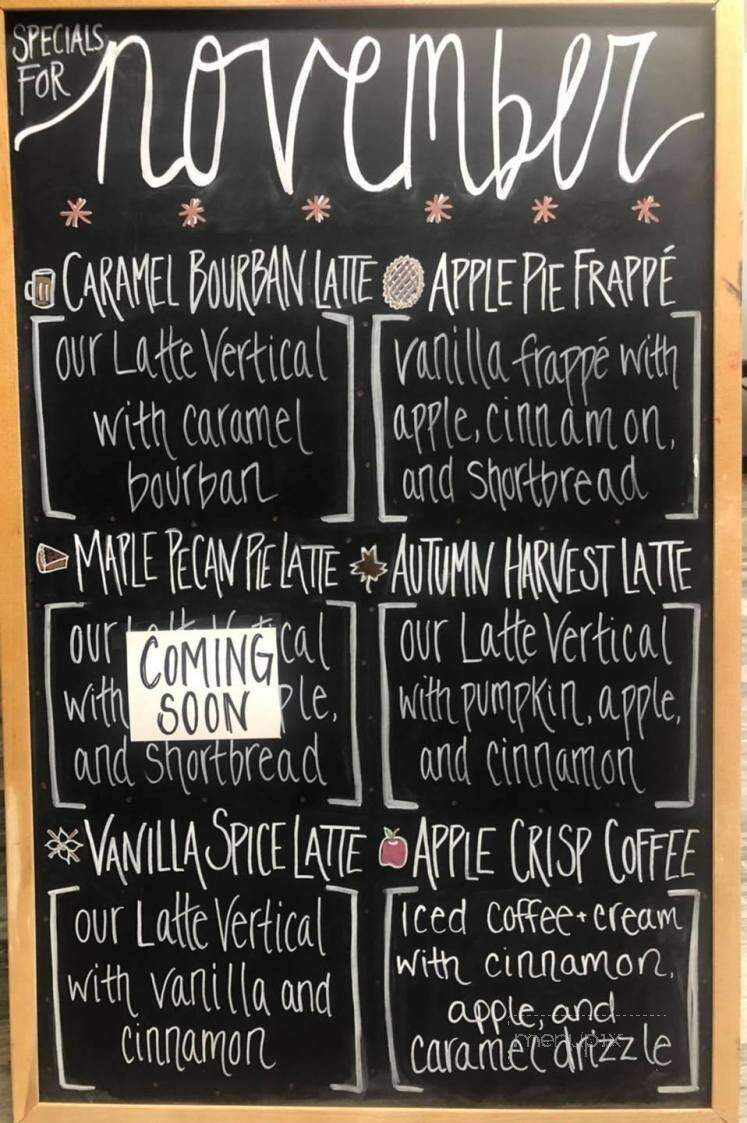 SPECIALS
FOR
november
CARAMEL BOURBAN LATTE
our Latte Vertical
with caramel
bourban
APPLE PIE FRAPPÉ
vanilla frappé with
apple, cinnamon,
and shortbread
MAPLE PECAN PIE LATTE
our
with
COMING
SOON
and shortbread
AUTUMN HARVEST LATTE
our Latte Vertical
with pumpkin, apple,
and cinnamon
VANILLA SPICE LATTE
our Latte Vertical
with vanilla and
cinnamon
APPLE CRISP COFFEE
iced coffee + cream
with cinnamon,
apple, and
caramel drizzle
menupix